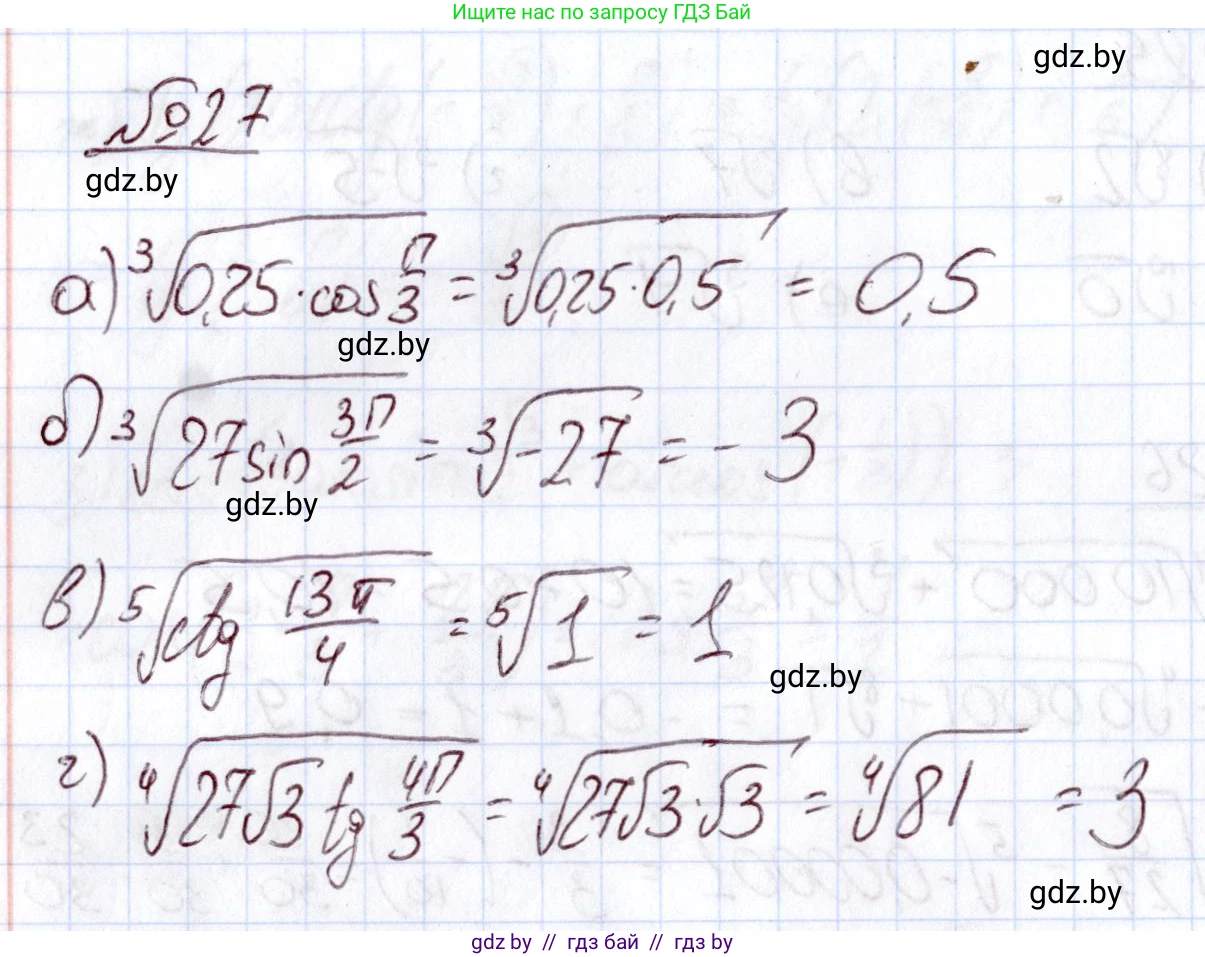 Ищите нас по запросу ГДЗ Бай
gdz.by
№27
gdz.by
а) ∛(0,25·cos π/3) = ∛(0,25·0,5) = 0,5
gdz.by
б) ∛(27sin 3π/2) = ∛(-27) = -3
gdz.by
в) ⁵√(ctg 13π/4) = ⁵√1 = 1
gdz.by
г) ⁴√(27√3 tg 4π/3) = ⁴√(27√3·√3) = ⁴√81 = 3
gdz.by
gdz.by // гдз бай // гдз by